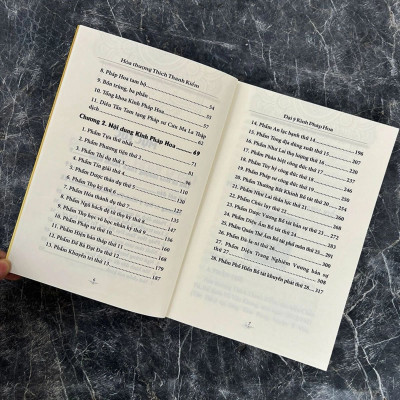 Hòa thượng Thích Thanh Kiểm
8. Pháp Hoa tam bộ
9. Bổn tràng, hạ phẩm 54
10. Tổng khoa Kinh Pháp Hoa 55
11. Diêu Tần Tam tạng Pháp sư Cưu Ma La Thập
dịch 67
Chương 2. Nội dung Kinh Pháp Hoa 69
1. Phẩm Tựa thứ nhất
2. Phẩm Phương tiện thứ 2
3. Phẩm Thí dụ thứ 3
4. Phẩm Tín giải thứ 4
5. Phẩm Dược thảo dụ thứ 5
6. Phẩm Thọ ký thứ 6
7. Phẩm Hóa thành dụ thứ 7
8. Phẩm Ngũ bách đệ tử thọ ký thứ 8
9. Phẩm Thọ học vô học nhân ký thứ 9
10. Phẩm Pháp sư thứ 10 160
11. Phẩm Hiện bảo tháp thứ 11 168
12. Phẩm Đề Bà Đạt Đa thứ 12 179
13. Phẩm Khuyến trì thứ 13 187
Đại ý Kinh Pháp Hoa
14. Phẩm An lạc hạnh thứ 14
15. Phẩm Tùng địa dũng xuất thứ 15
16. Phẩm Như Lai thọ lượng thứ 16
17. Phẩm Phân biệt công đức thứ 17
18. Phẩm Tùy hỷ công đức thứ 18
19. Phẩm Pháp sư công đức thứ 19
20. Phẩm Thường Bất Khinh Bồ tát thứ 20
21. Phẩm Như Lai thần lực thứ 21
22. Phẩm Chúc lụy thứ 22
23. Phẩm Dược Vương Bồ tát bản sự thứ 23
24. Phẩm Diệu Âm Bồ tát thứ 24
25. Phẩm Quán Thế Âm Bồ tát phổ môn thứ 25
26. Phẩm Đà la ni thứ 26
27. Phẩm Diệu Trang Nghiêm Vương bản sự
thứ 27
28. Phẩm Phổ Hiền Bồ tát khuyến phát thứ 28 317